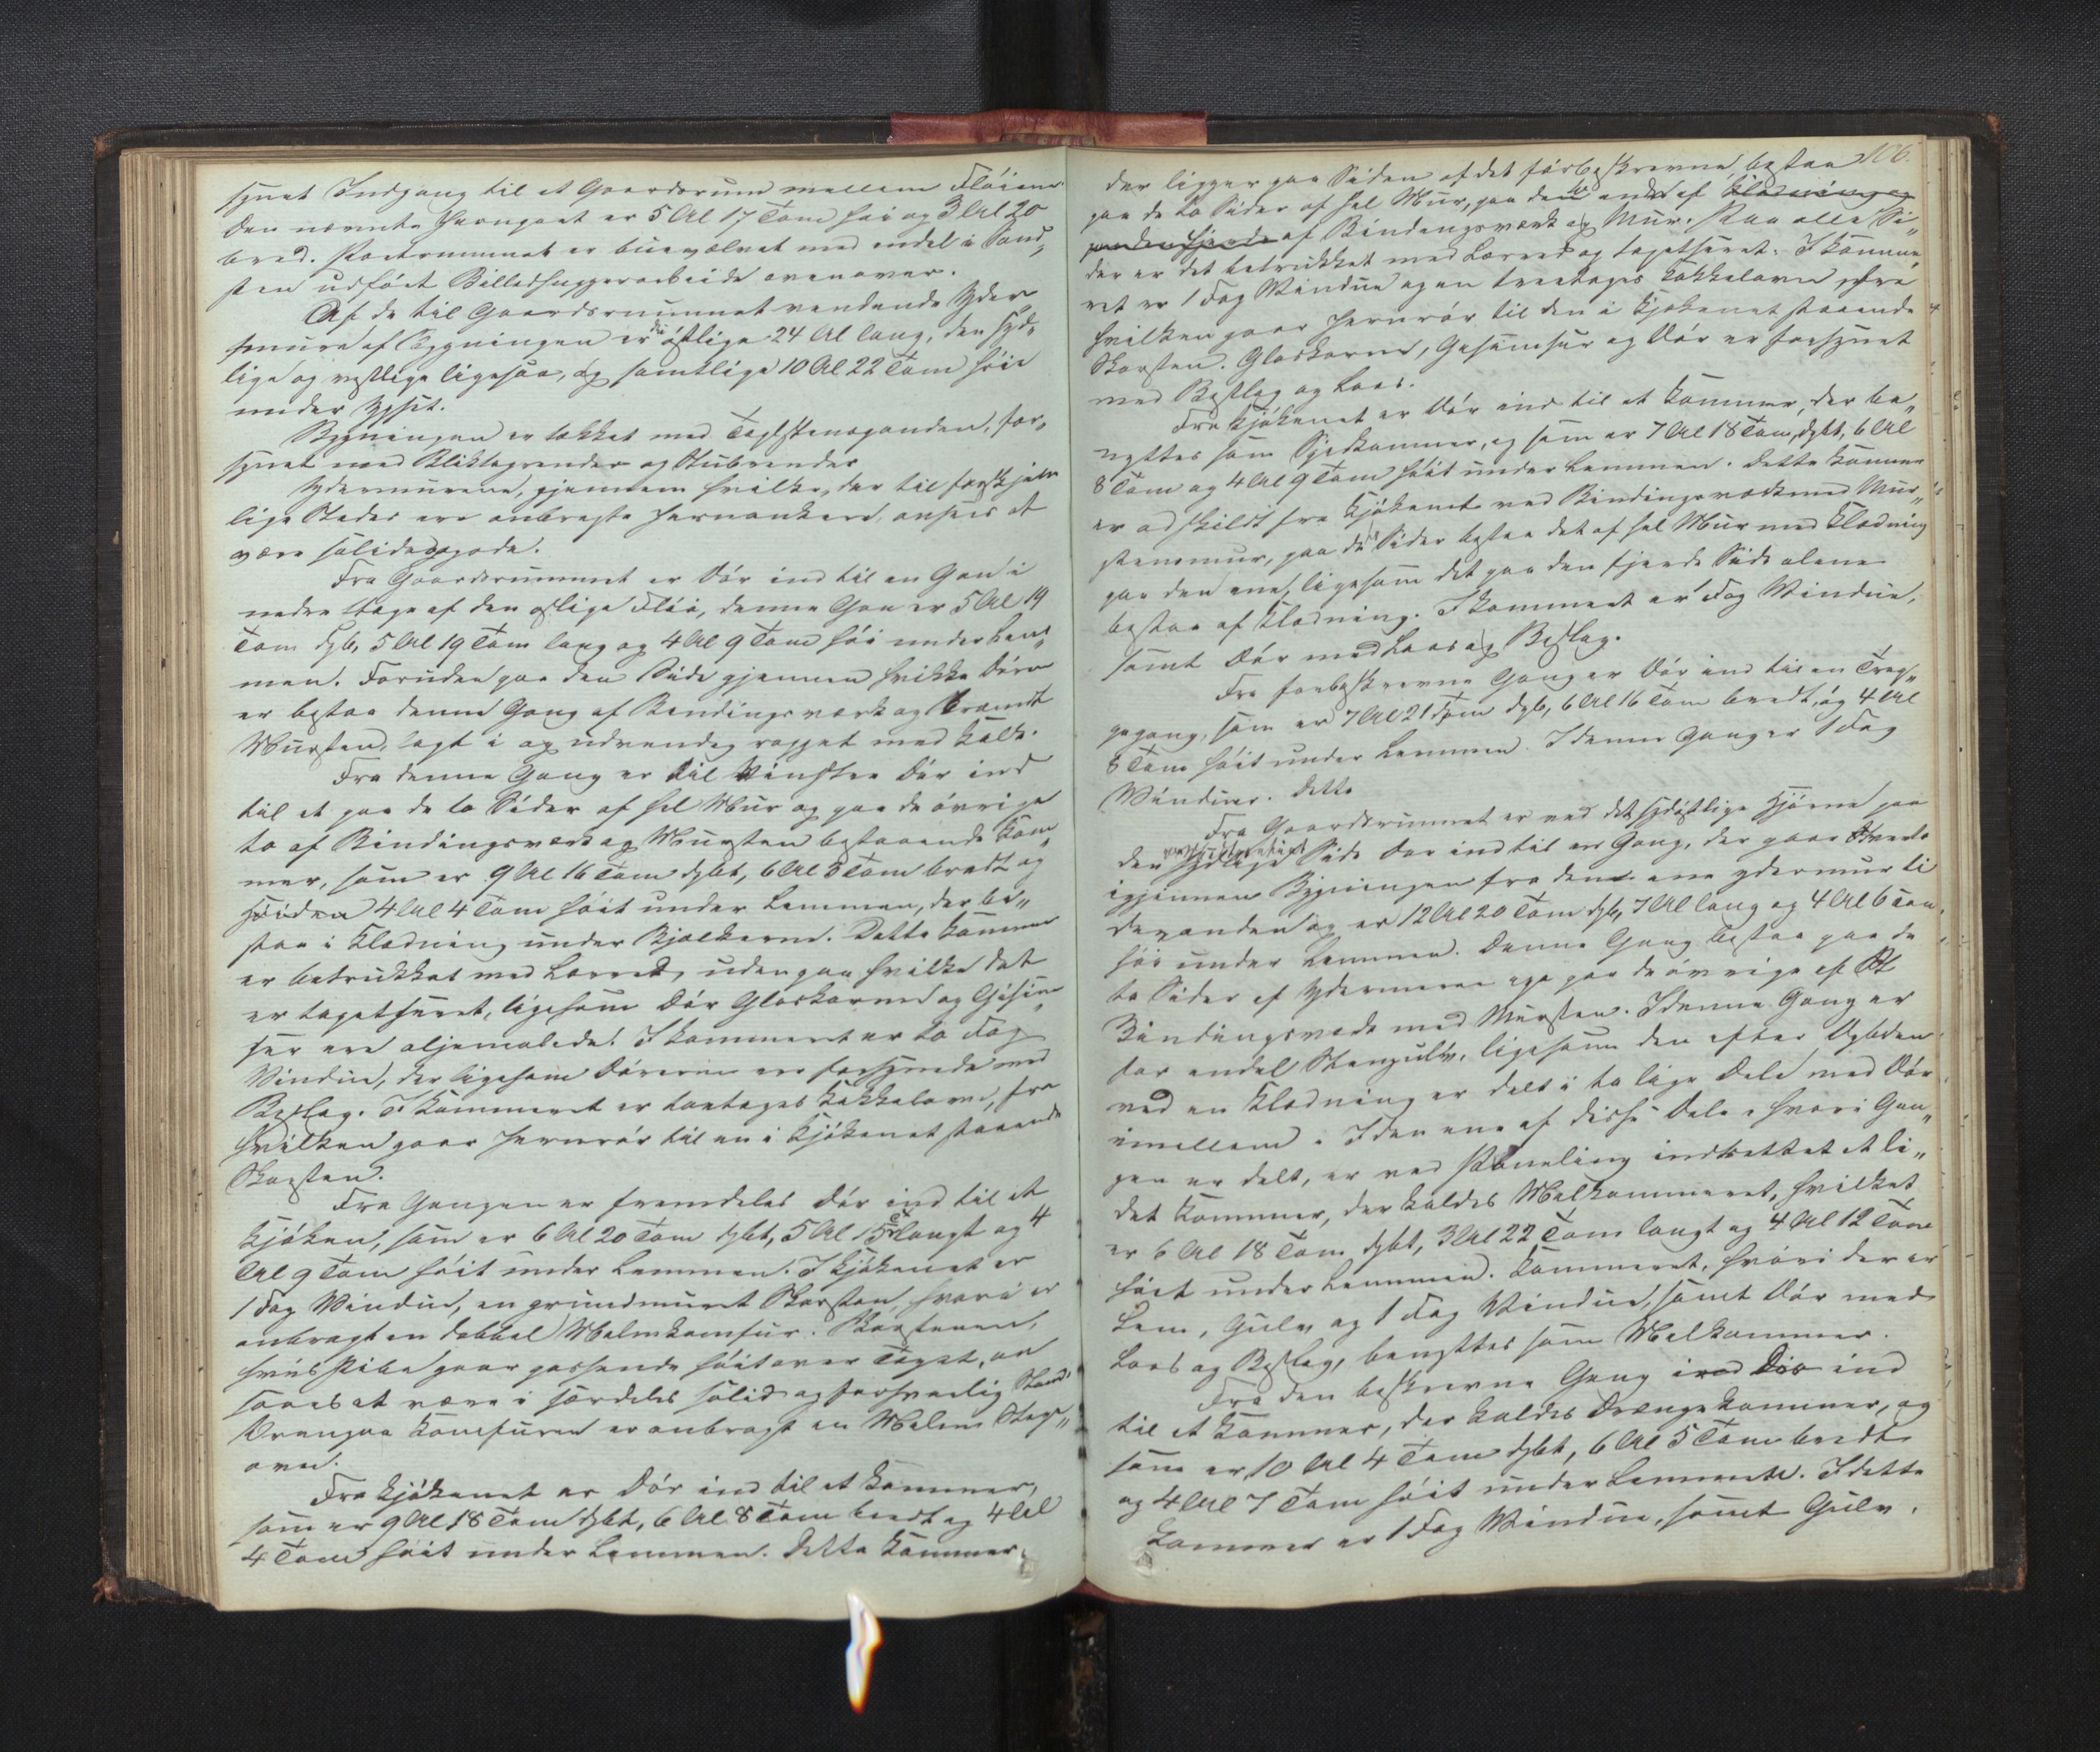 synet Indgang til et Gaardsrum mellem Fløiene.
Den nævnte Jernport er 5 Al 17 Tom høi og 3 Al 20
bred. Portrummet er buevælvet med endel i Sand„
sten udført Billedhuggerarbeide ovenover.
Af de til Gaardsrummet vendende Yder„
mure af Bygningen er den østlige 24 Al lang, den syd„
lige og vestlige ligesaa, og samtlige 10 Al 22 Tom høie
under Gesims.
Bygningen er tækket med Teglstenspander, for„
synet med Bliktagrender og Stubrender
Ydermurene, gjennem hvilke, der til forskjel„
lige Steder ere anbragte Jernankere, ansees at
være solide og gode.
Fra Gaardsrummet er Dør ind til en Gan i
nedre Etage af den østlige Fløi, denne Gan er 5 Al 19
Tom dyb, 5 Al 19 Tom lang og 4 Al 9 Tom høi under Lem„
men. Foruden paa den Side gjennem hvilke Døre
er bestaa denne Gang af Bindingsværk og brændt
Mursten, lagt i og udvendig rappet med Kalk.
Fra denne Gang er til Vinstre Dør ind
til et paa de to Sider af hel Mur og paa de øvrige
to af Bindingsværk og Mursten bestaaende Kam„
mer, som er 9 Al 16 Tom dybt, 6 Al 3 Tom bredt og
Høiden 4 Al 4 Tom høit under Lemmen, der be„
staa i Klædning under Bjælkerne. Dette Kammer
er betrukket med Lærred, uden paa hvilke det
er tapetseret, ligesom Dør Gløskarme og Gesim„
ser ere oljemalede. I Kammeret er to Fag
Vindue, der ligesom Dørerne ere forsynede med
Beslag. I Kammeret er toetages Kakkelovn, fra
hvilken gaar Jernrør til en i Kjøkenet staaende
Skorsten.
Fra Gangen er fremdeles Dør ind til et
Kjøken, som er 6 Al 20 Tom dybt, 5 Al 15 T langt og 4
Al 9 Tom høit under Lemmen. I Kjøkenet er
1 Fag Vindue, en grundmuret Skorsten, hvori er
anbragt en dobbel Malmkomfur. Skorstenen,
hvis Pibe gaar passende høit over Taget, an
saaes at være i særdeles solid og forsvarlig Stand
Ovenpaa Komfuren er anbragt en Malm Steg„
ovn.
Fra Kjøkenet er Dør ind til et Kammer,
som er 9 Al 18 Tom dybt, 6 Al 8 Tom bredt og 4 Al
4 Tom høit under Lemmen. Dette Kammer,
106.
der ligger paa Siden af det førbeskrevne, bestaa
paa de to Sider af hel Mur, paa de to andre af Klædning og
paa den fjerde af Bindingsværk og Mur. Paa alle Si„
der er det betrukket med Lærred og tapetseret. I Kamme„
ret er 1 Fag Vindue og en treetages Kakkelovn, fra
hvilken gaar Jernrør til den i Kjøkenet staaende
Skorsten. Gløskarme, Gesimser og Dør er forsynet
med Beslag og Laas.
Fra Kjøkenet er Dør ind til et Kammer, der be„
nyttes som Spisekammer, og som er 7 Al 18 Tom dybt, 6 Al
8 Tom og 4 Al 9 Tom høit under Lemmen. Dette Kammer
er adskildt fra Kjøkenet ved Bindingsværk med Mur„
stensmur, paa de Sider bestaa det af hel Mur med Klædning
paa den ene, ligesom det paa den fjerde Side alene
bestaa af Klædning. I Kammeret er Fag Vindue,
samt Dør med Laas og Beslag.
Fra forbeskrevne Gang er Dør ind til en Trap„
pegang, som er 7 Al 21 Tom dyb, 6 Al 16 Tom bredt, og 4 Al
8 Tom høit under Lemmen. I denne Gang er 1 Fag
Vindue. Dette
Fra Gaardsrummet er ved det sydøstlige Hjørne paa
den sydlige Side Dør ind til en Gang, der gaar tverts
igjennem Bygningen fra den ene Ydermur ti
den anden og er 12 Al 20 Tom dyb, 7 Al lang og 4 Al 6 Tom
høi under Lemmen. Denne Gang bestaa paa de
to Sider af Ydermurene og paa de øvrige af
Bindingsværk med Mursten. I denne Gang er
for endel Stengulv, ligesom den efter Dybden
ved en Klædning er delt i to lige Dele med Dør
imellem. I den ene af disse Dele, hvori Gan„
gen er delt, er ved Paneling indrettet et li„
det Kammer, der kaldes Melkammeret, hvilket
er 6 Al 18 Tom dybt, 3 Al 22 Tom langt og 4 Al 12 Tom
høit under Lemmen. Kammeret, hvori der er
Lem, Gulv og 1 Fag Vindue, samt Dør med
Laas og Beslag, benyttes som Melkammer.
Fra den beskrevne Gang ind Dør ind
til et Kammer, der kaldes Drengekammer, og
som er 10 Al 4 Tom dybt, 6 Al 5 Tom bredt
og 4 Al 7 Tom høit under Lemmen. I dette
Kammer er 1 Fag Vindue, samt Gulv.